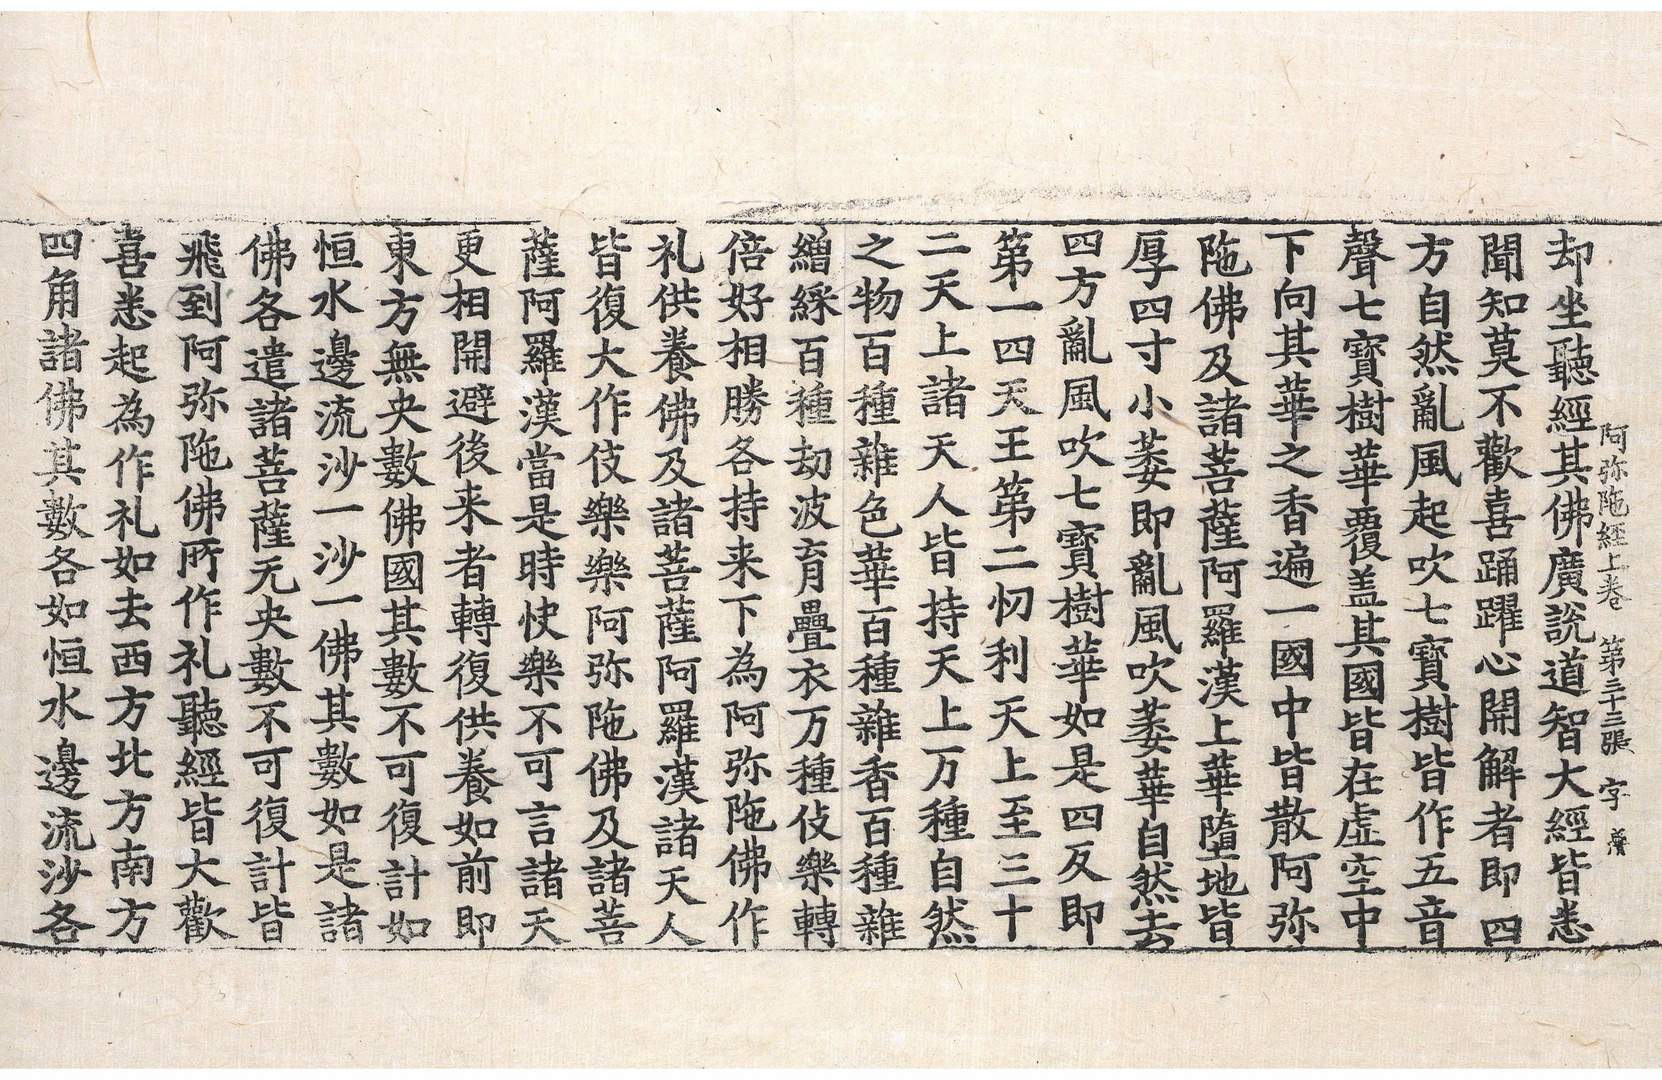 阿弥陁經上卷 第三十三張 字 養
却坐聽經其佛廣說道智大經皆悉
聞知莫不歡喜踊躍心開解者即四
方自然亂風起吹七寶樹皆作五音
聲七寶樹華覆盖其國皆在虛空中
下向其華之香遍一國中皆散阿弥
陁佛及諸菩薩阿羅漢上華墮地皆
厚四寸小萎即亂風吹萎華自然去
四方亂風吹七寶樹華如是四反即
第一四天王第二忉利天上至三十
二天上諸天人皆持天上万種自然
之物百種雜色華百種雜香百種雜
繒綵百種劫波育疊衣万種伎樂轉
倍好相勝各持来下為阿弥陁佛作
礼供養佛及諸菩薩阿羅漢諸天人
皆復大作伎樂樂阿弥陁佛及諸菩
薩阿羅漢當是時快樂不可言諸天
更相開避後来者轉復供養如前即
東方無央數佛國其數不可復計如
恒水邊流沙一沙一佛其數如是諸
佛各遣諸菩薩无央數不可復計皆
飛到阿弥陁佛所作礼聽經皆大歡
喜悉起為作礼如去西方北方南方
四角諸佛其數各如恒水邊流沙各